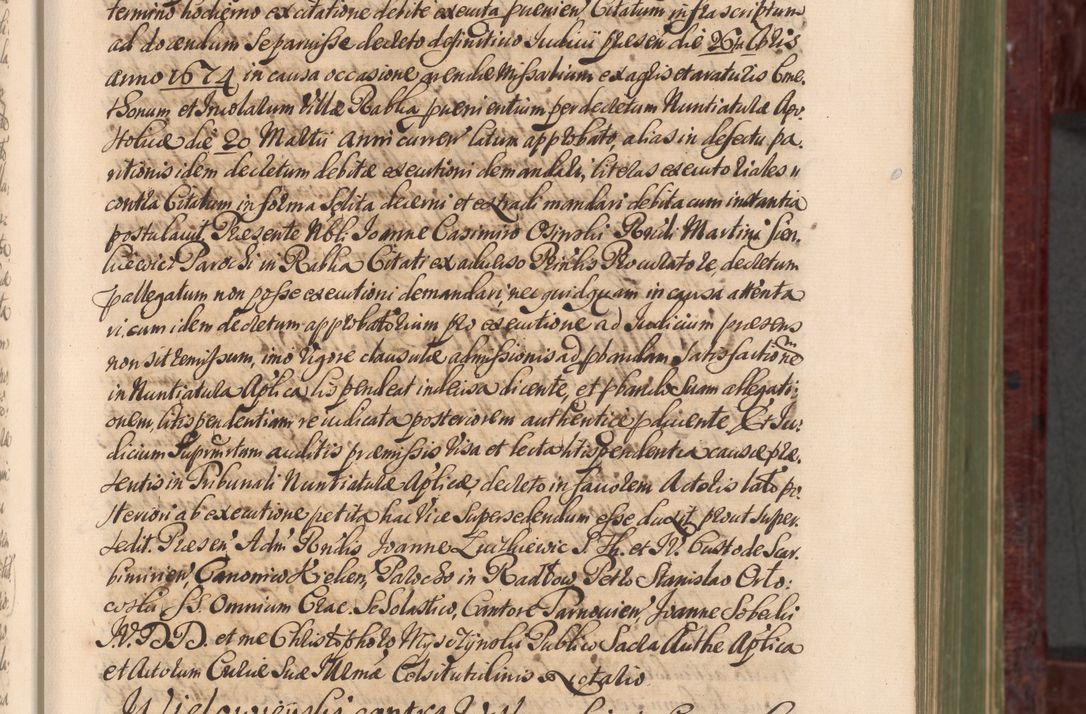 termino hodierno ex citatione debite executa puenien Citatum infra scriptum
ad docendum se paruisse decreto definitivo Iudicii presen die 26
Anno 1674 in causa occasione Missalium ex agris et araturis Cme,
thonum et Inculatum Villæ Rabka puenientium per decretum Nuntiaturæ Apo,
stolicæ die 20 Martii Anni curren latum approbato, alias in defectu pa,
ritionis idem decretum debitæ executioni demandari, literas executoriales
contra Citatum in forma solita decerni et extradi mandari debita cum instantia
postulavit. Præsente Nbli Joanne Casimiro Osinski Rndi Martini Sien,
kiewicz Parochi in Rabka Citati ex adverso Prinlis Procuratore, decretum
pallegatum non posse executioni demandari, nec quidquam in causa attenta
ri, cum idem decretum approbatorium pro executione ad Iudicium præsens
non sit remissum, imo vigore clausulæ admissionis ad pbandam satisfactionem
in Nuntiatura Aplica lis pendeat indecisa dicente, et pbando suam allegati,
onem, litispendentiam re iudicata posteriorem authentice pducente. Et Iu,
dicium Supmtum auditis præmissis visa et lecta litispendentia causæ præ,
sentis in Tribunali Nuntiaturæ Aplicæ, decreto in favorem Actoris lato po,
steriori ab executione petita hac vice supersedendum esse duxit prout super,
sedit. Præsen Adm Rndis Joanne Zuchiewic S. Th. et IV. Custode Scar,
bimirien Canonico Kielcen, Parocho in Radłow, Petro Stanislao Orło,
coski SS. Omnium Crac. Scholastico, Cantore Tarnovien, Joanne Soberki
IV. DD. et me Christophoro Myszczynski Publico Sacra Authe Aplica
et Actorum Curiæ Suæ Illmæ Celsitudinis Notario.
Wielowieyski contra